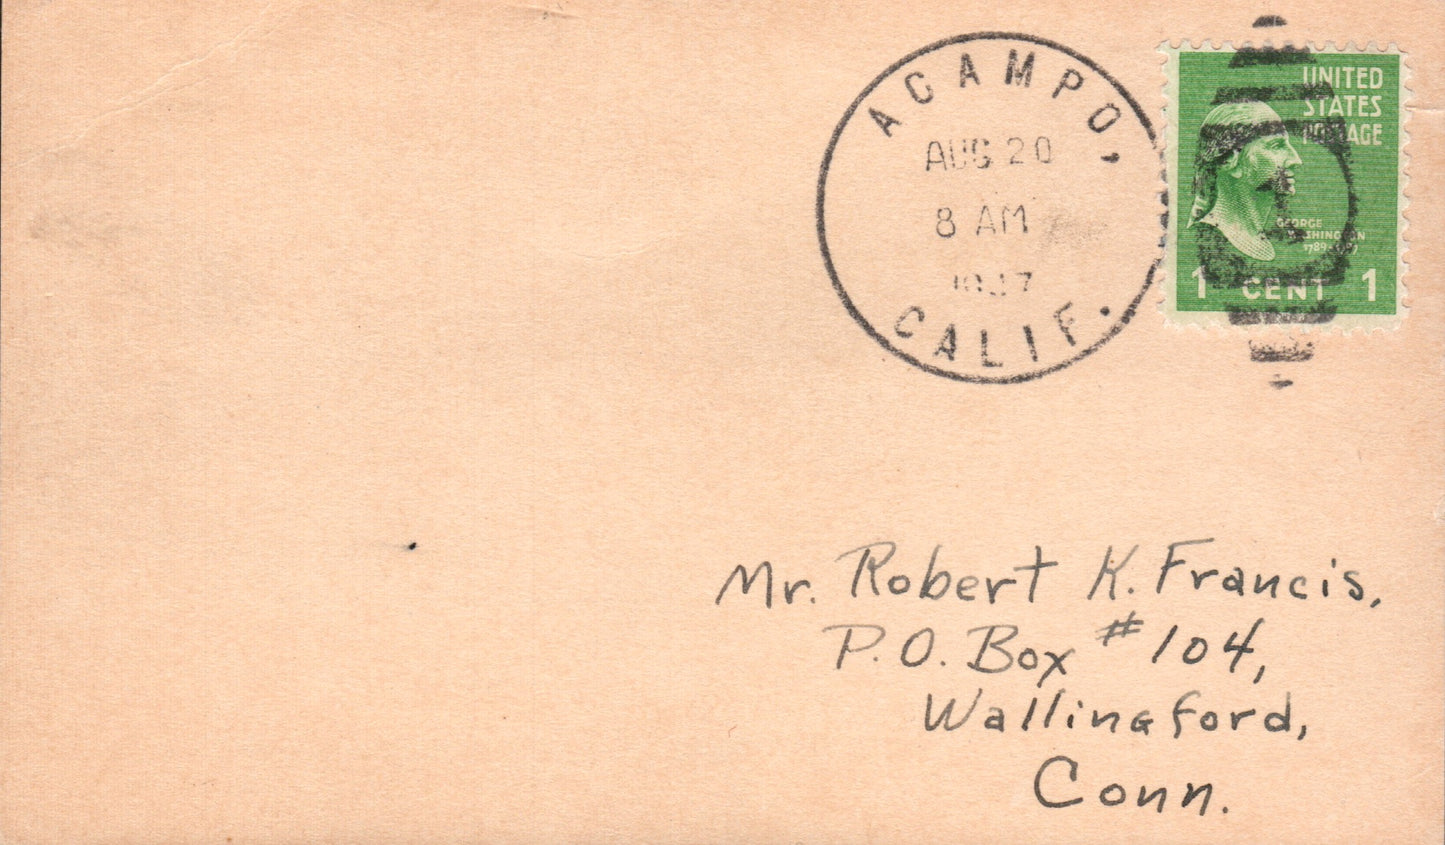 ACAMPO,
AUG 20
8 AM
CALIF.
UNITED
STATES
POSTAGE
GEORGE
WASHINGTON
1 CENT 1
Mr. Robert K. Francis,
P.O. Box #104,
Wallingford,
Conn.